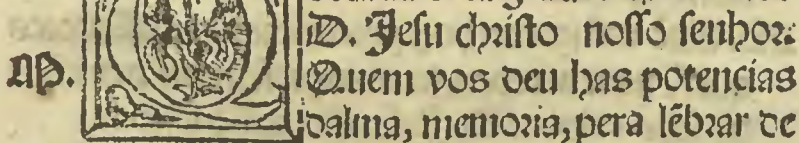 D. Jesu christo nosso senhor.
M. Quem vos deu has potencias
dalma, memoria, pera lẽbrar de